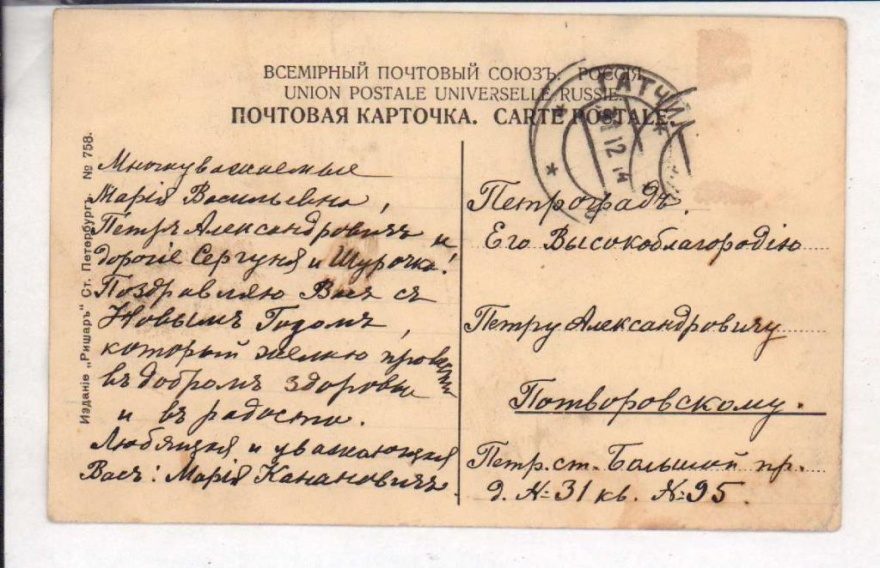 ВСЕМІРНЫЙ ПОЧТОВЫЙ СОЮЗЪ. РОССІЯ.
UNION POSTALE UNIVERSELLE RUSSIE.
ПОЧТОВАЯ КАРТОЧКА. CARTE POSTALE.
ГАТЧИ
12
Изданіе „Ришаръ" Ст. Петербургъ. № 758.
Многоуважаемые
Марія Васильевна,
Петръ Александровичъ и
дорогіе Сергуня и Шурочка!
Поздравляю Васъ съ
Новымъ Годомъ,
который желаю провести
въ добромъ здоровьи
и въ радости.
Любящая и уважающая
Васъ: Марія Канановичъ.
Петроградъ.
Его Высокоблагородію
Петру Александровичу
Потворовскому.
Петр. ст. Большой пр.
д. № 31 кв. № 95.